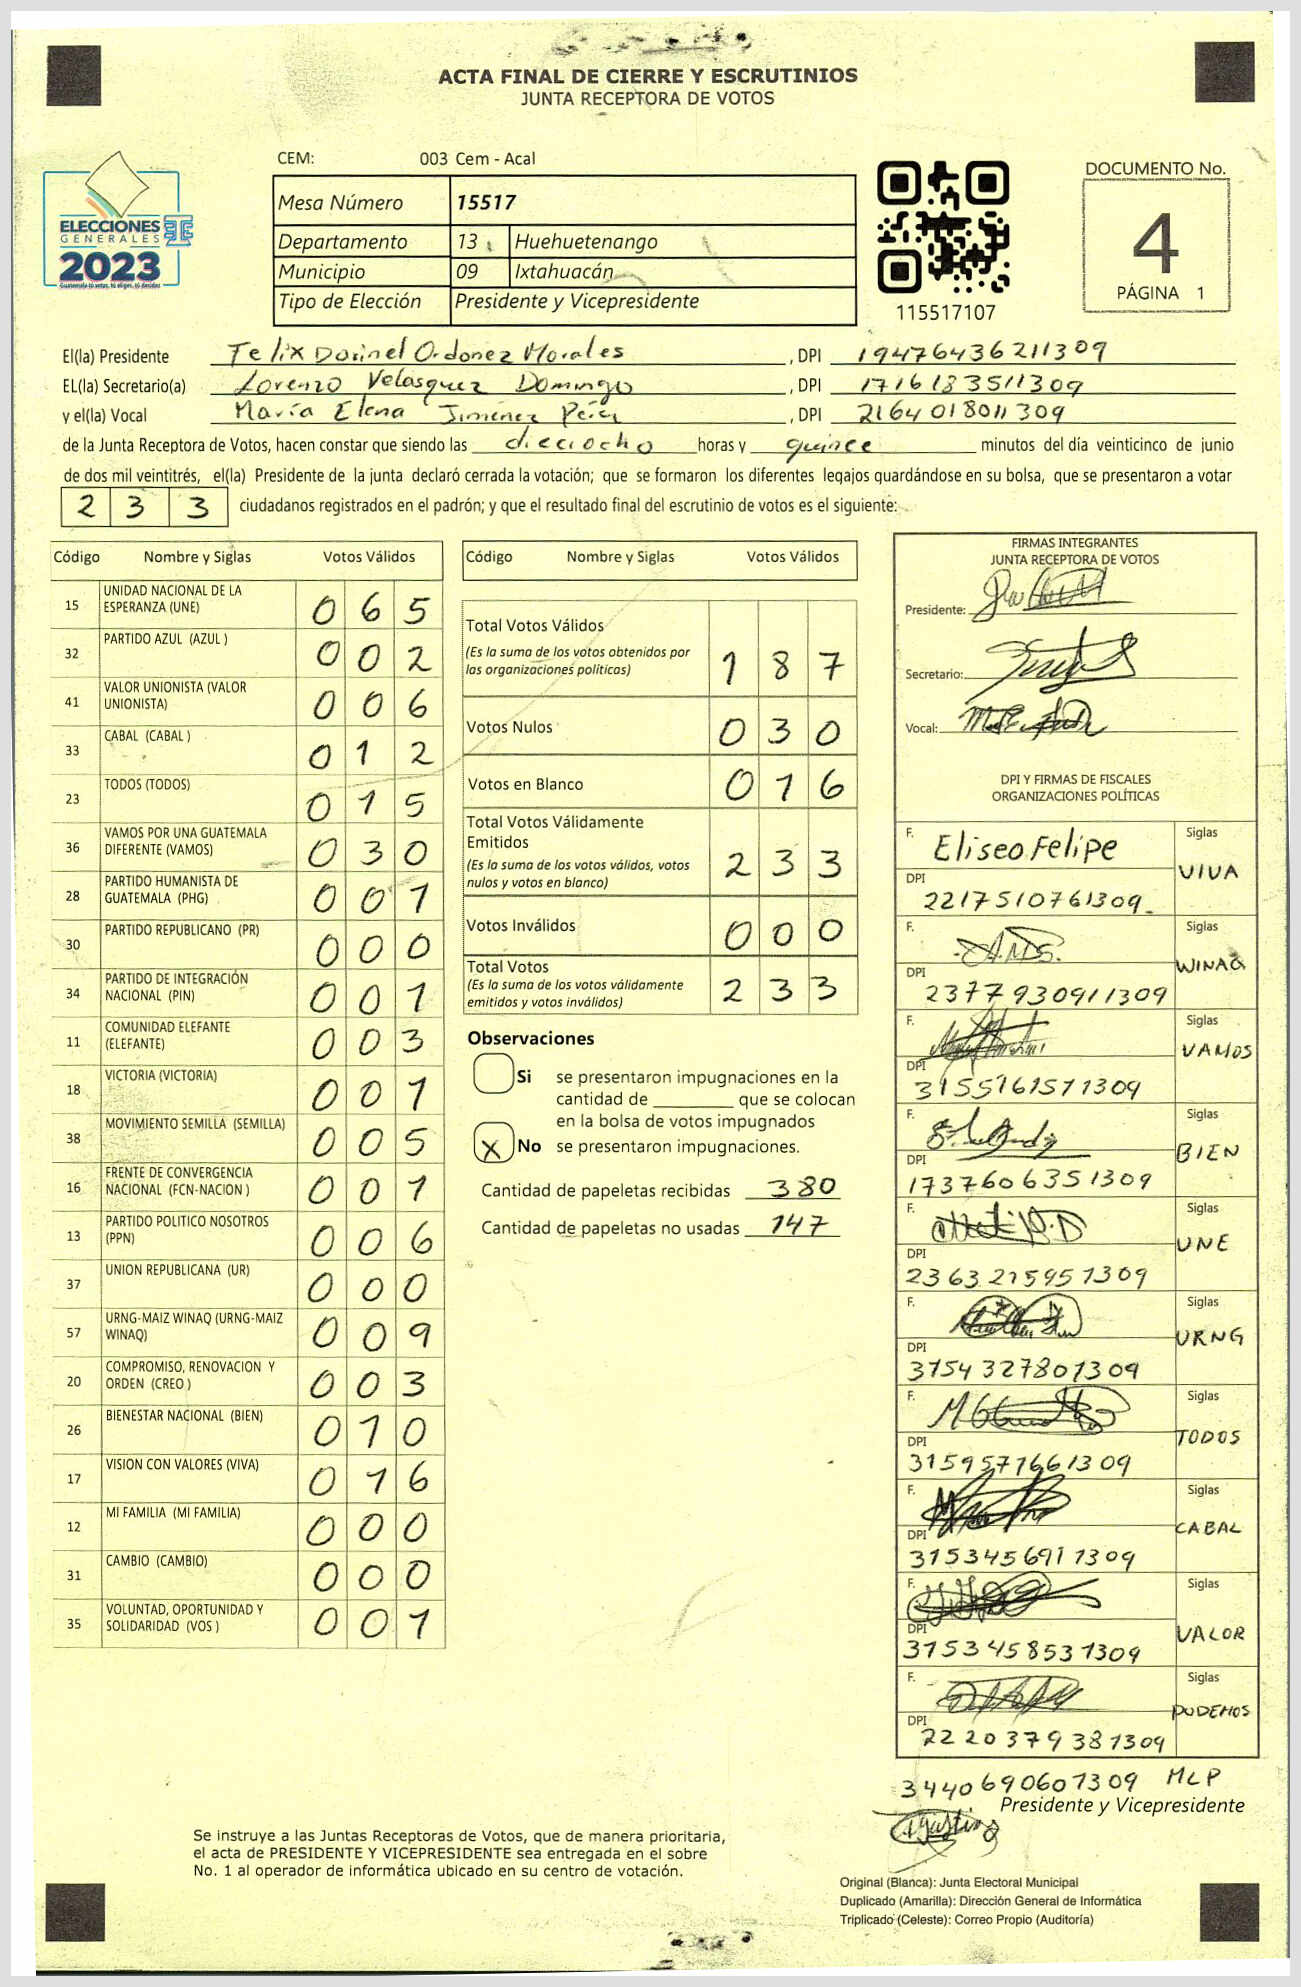 ACTA FINAL DE CIERRE Y ESCRUTINIOS
JUNTA RECEPTORA DE VOTOS
CEM: 003 Cem - Acal
ELECCIONES
GENERALES
2023
Guatemala tú votas, tú eliges, tú decides
Mesa Número 15517
Departamento 13 Huehuetenango
Municipio 09 Ixtahuacán
Tipo de Elección Presidente y Vicepresidente
115517107
DOCUMENTO No.
4
PÁGINA 1
El(la) Presidente Felix Dorinel Ordonez Morales , DPI 1947643621309
EL(la) Secretario(a) Lorenzo Velasquez Domingo , DPI 1716183511309
y el(la) Vocal María Elena Jiménez Pérez , DPI 2164018011309
de la Junta Receptora de Votos, hacen constar que siendo las dieciocho horas y quince minutos del día veinticinco de junio
de dos mil veintitrés, el(la) Presidente de la junta declaró cerrada la votación; que se formaron los diferentes legajos guardándose en su bolsa, que se presentaron a votar
2 3 3 ciudadanos registrados en el padrón; y que el resultado final del escrutinio de votos es el siguiente:
Código Nombre y Siglas Votos Válidos
15 UNIDAD NACIONAL DE LA ESPERANZA (UNE) 0 6 5
32 PARTIDO AZUL (AZUL ) 0 0 2
41 VALOR UNIONISTA (VALOR UNIONISTA) 0 0 6
33 CABAL (CABAL ) 0 1 2
23 TODOS (TODOS) 0 1 5
36 VAMOS POR UNA GUATEMALA DIFERENTE (VAMOS) 0 3 0
28 PARTIDO HUMANISTA DE GUATEMALA (PHG) 0 0 1
30 PARTIDO REPUBLICANO (PR) 0 0 0
34 PARTIDO DE INTEGRACIÓN NACIONAL (PIN) 0 0 1
11 COMUNIDAD ELEFANTE (ELEFANTE) 0 0 3
18 VICTORIA (VICTORIA) 0 0 1
38 MOVIMIENTO SEMILLA (SEMILLA) 0 0 5
16 FRENTE DE CONVERGENCIA NACIONAL (FCN-NACION ) 0 0 1
13 PARTIDO POLITICO NOSOTROS (PPN) 0 0 6
37 UNION REPUBLICANA (UR) 0 0 0
57 URNG-MAIZ WINAQ (URNG-MAIZ WINAQ) 0 0 9
20 COMPROMISO, RENOVACION Y ORDEN (CREO ) 0 0 3
26 BIENESTAR NACIONAL (BIEN) 0 1 0
17 VISION CON VALORES (VIVA) 0 1 6
12 MI FAMILIA (MI FAMILIA) 0 0 0
31 CAMBIO (CAMBIO) 0 0 0
35 VOLUNTAD, OPORTUNIDAD Y SOLIDARIDAD (VOS ) 0 0 1
Código Nombre y Siglas Votos Válidos
Total Votos Válidos
(Es la suma de los votos obtenidos por las organizaciones políticas) 1 8 7
Votos Nulos 0 3 0
Votos en Blanco 0 1 6
Total Votos Válidamente Emitidos
(Es la suma de los votos válidos, votos nulos y votos en blanco) 2 3 3
Votos Inválidos 0 0 0
Total Votos
(Es la suma de los votos válidamente emitidos y votos inválidos) 2 3 3
Observaciones
Si se presentaron impugnaciones en la
cantidad de ________ que se colocan
en la bolsa de votos impugnados
X No se presentaron impugnaciones.
Cantidad de papeletas recibidas 380
Cantidad de papeletas no usadas 147
FIRMAS INTEGRANTES
JUNTA RECEPTORA DE VOTOS
Presidente:
Secretario:
Vocal:
DPI Y FIRMAS DE FISCALES
ORGANIZACIONES POLÍTICAS
F. Eliseo Felipe Siglas VIVA
DPI 2217510761309
F. Siglas WINAQ
DPI 2377930911309
F. Siglas VAMOS
DPI 3155161571309
F. Siglas BIEN
DPI 1737606351309
F. Siglas UNE
DPI 2363215951309
F. Siglas URNG
DPI 3154327801309
F. Siglas TODOS
DPI 3159571661309
F. Siglas CABAL
DPI 3153456911309
F. Siglas VALOR
DPI 3153458531309
F. Siglas PODEMOS
DPI 2220379381309
3440690601309 MLP
Presidente y Vicepresidente
Se instruye a las Juntas Receptoras de Votos, que de manera prioritaria,
el acta de PRESIDENTE Y VICEPRESIDENTE sea entregada en el sobre
No. 1 al operador de informática ubicado en su centro de votación.
Original (Blanca): Junta Electoral Municipal
Duplicado (Amarilla): Dirección General de Informática
Triplicado (Celeste): Correo Propio (Auditoría)